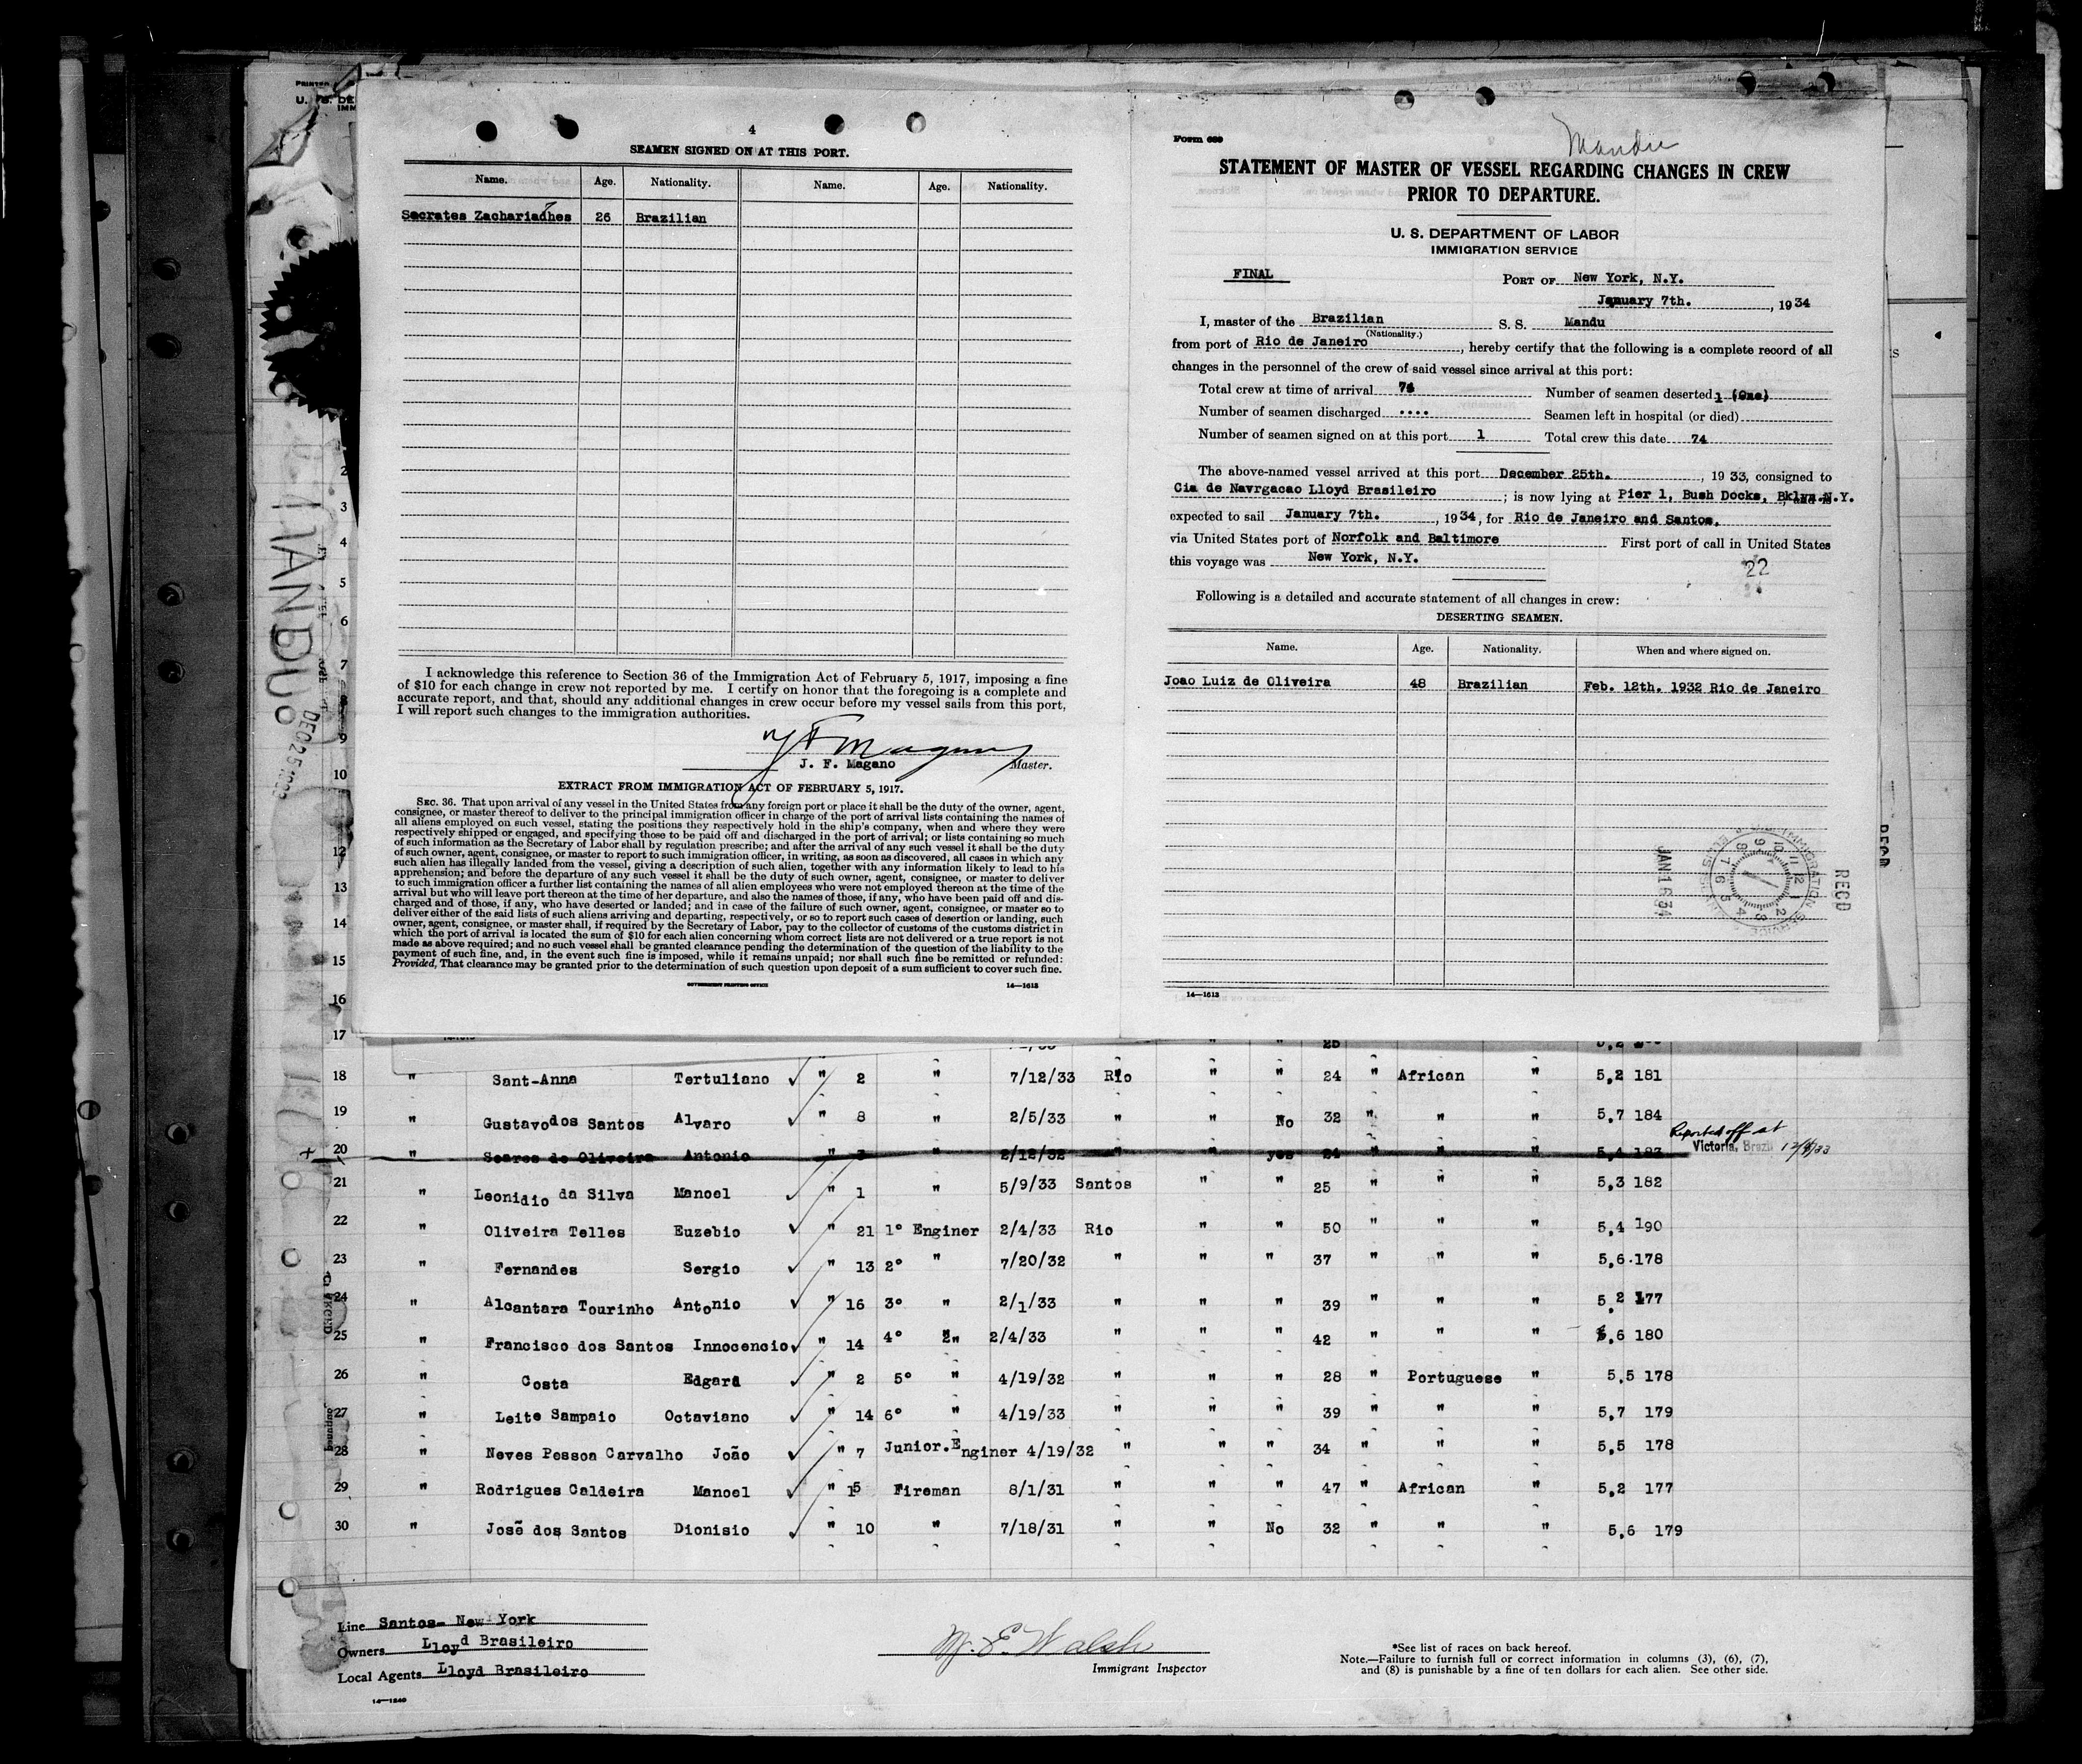 4
SEAMEN SIGNED ON AT THIS PORT.
Name. Age. Nationality. Name. Age. Nationality.
Socrates Zachariadhes 26 Brazilian
I acknowledge this reference to Section 36 of the Immigration Act of February 5, 1917, imposing a fine
of $10 for each change in crew not reported by me. I certify on honor that the foregoing is a complete and
accurate report, and that, should any additional changes in crew occur before my vessel sails from this port,
I will report such changes to the immigration authorities.
J. F. Magano Master.
EXTRACT FROM IMMIGRATION ACT OF FEBRUARY 5, 1917.
SEC. 36. That upon arrival of any vessel in the United States from any foreign port or place it shall be the duty of the owner, agent,
consignee, or master thereof to deliver to the principal immigration officer in charge of the port of arrival lists containing the names of
all aliens employed on such vessel, stating the positions they respectively hold in the ship's company, when and where they were
respectively shipped or engaged, and specifying those to be paid off and discharged in the port of arrival; or lists containing so much
of such information as the Secretary of Labor shall by regulation prescribe; and after the arrival of any such vessel it shall be the duty
of such owner, agent, consignee, or master to report to such immigration officer, in writing, as soon as discovered, all cases in which any
such alien has illegally landed from the vessel, giving a description of such alien, together with any information likely to lead to his
apprehension; and before the departure of any such vessel it shall be the duty of such owner, agent, consignee, or master to deliver
to such immigration officer a further list containing the names of all alien employees who were not employed thereon at the time of the
arrival but who will leave port thereon at the time of her departure, and also the names of those, if any, who have been paid off and dis-
charged and of those, if any, who have deserted or landed; and in case of the failure of such owner, agent, consignee, or master so to
deliver either of the said lists of such aliens arriving and departing, respectively, or so to report such cases of desertion or landing, such
owner, agent, consignee, or master shall, if required by the Secretary of Labor, pay to the collector of customs of the customs district in
which the port of arrival is located the sum of $10 for each alien concerning whom correct lists are not delivered or a true report is not
made as above required; and no such vessel shall be granted clearance pending the determination of the question of the liability to the
payment of such fine, and, in the event such fine is imposed, while it remains unpaid; nor shall such fine be remitted or refunded:
Provided, That clearance may be granted prior to the determination of such question upon deposit of a sum sufficient to cover such fine.
GOVERNMENT PRINTING OFFICE 14—1613
Mandu
Form
STATEMENT OF MASTER OF VESSEL REGARDING CHANGES IN CREW
PRIOR TO DEPARTURE.
U. S. DEPARTMENT OF LABOR
IMMIGRATION SERVICE
FINAL PORT OF New York, N.Y.
January 7th. , 1934
I, master of the Brazilian S. S. Mandu
(Nationality.)
from port of Rio de Janeiro, hereby certify that the following is a complete record of all
changes in the personnel of the crew of said vessel since arrival at this port:
Total crew at time of arrival Number of seamen deserted 1 (One)
Number of seamen discharged .... Seamen left in hospital (or died)
Number of seamen signed on at this port 1 Total crew this date 74
The above-named vessel arrived at this port December 25th. , 1933, consigned to
Cia de Navrgacao Lloyd Brasileiro ; is now lying at Pier 1, Bush Docks, Bklyn.N.Y.
expected to sail January 7th. , 1934, for Rio de Janeiro and Santos.
via United States port of Norfolk and Baltimore First port of call in United States
this voyage was New York, N.Y.
22
Following is a detailed and accurate statement of all changes in crew:
DESERTING SEAMEN.
Name. Age. Nationality. When and where signed on.
Joao Luiz de Oliveira 48 Brazilian Feb. 12th. 1932 Rio de Janeiro
JAN 16 34
RECD
14—1613
MANDU
DEC 25 1933
18 " Sant-Anna Tertuliano " 2 " 7/12/33 Rio " " 24 " African " 5,2 181
19 " Gustavo dos Santos Alvaro " 8 " 2/5/33 " " No 32 " " " 5,7 184
20 " Soares de Oliveira Antonio " " 2/12/32 " " yes 24 " " " 5,4 183 Reported off at Victoria, Brazil
21 " Leonidio da Silva Manoel " 1 " 5/9/33 Santos " " 25 " " " 5,3 182
22 " Oliveira Telles Euzebio " 21 1º Enginer 2/4/33 Rio " " 50 " " " 5,4 190
23 " Fernandes Sergio " 13 2º " 7/20/32 " " " 37 " " " 5,6 178
24 " Alcantara Tourinho Antonio " 16 3º " 2/1/33 " " " 39 " " " 5,2 177
25 " Francisco dos Santos Innocencio " 14 4º " 2/4/33 " " " 42 " " " 5,6 180
26 " Costa Edgard " 2 5º " 4/19/32 " " " 28 " Portuguese " 5,5 178
27 " Leite Sampaio Octaviano " 14 6º " 4/19/33 " " " 39 " " " 5,7 179
28 " Neves Pessoa Carvalho João " 7 Junior.Enginer 4/19/32 " " " 34 " " " 5,5 178
29 " Rodrigues Caldeira Manoel " 15 Fireman 8/1/31 " " " 47 " African " 5,2 177
30 " José dos Santos Dionisio " 10 " 7/18/31 " " No 32 " " " 5,6 179
Line Santos- New York
Owners Lloyd Brasileiro
Local Agents Lloyd Brasileiro
14—1240
M. E. Walsh
Immigrant Inspector
*See list of races on back hereof.
Note.—Failure to furnish full or correct information in columns (3), (6), (7),
and (8) is punishable by a fine of ten dollars for each alien. See other side.